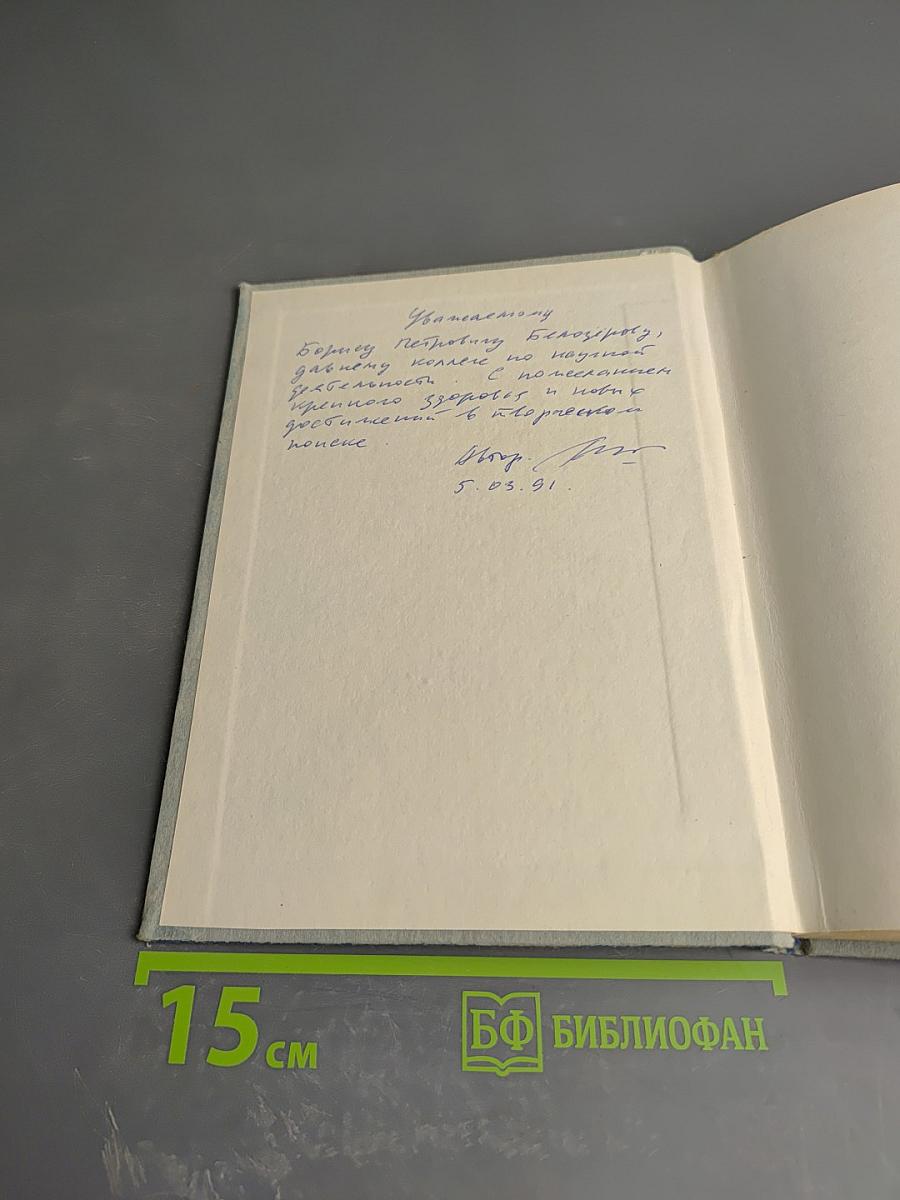 Уважаемому
Борису Петровичу Белозёрову,
давнему коллеге по научной
деятельности. С пожеланием
крепкого здоровья и новых
достижений в творческом
поиске.
Автор.
5.03.91.
15 см
БФ БИБЛИОФАН